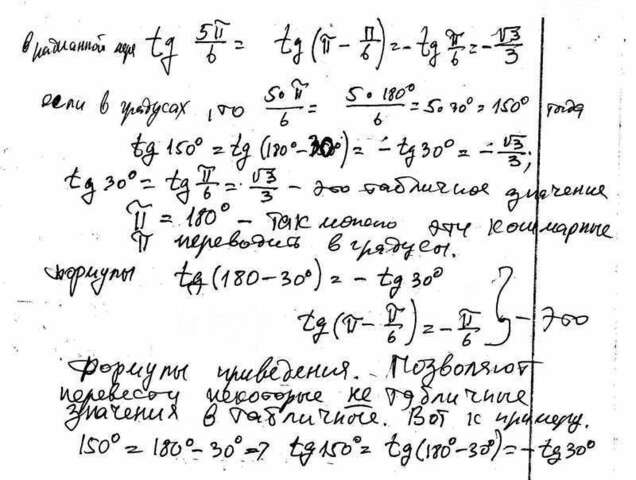 в радианной мере tg 5π/6 = tg(π - π/6) = -tg π/6 = -√3/3
если в градусах, то 5·π/6 = 5·180°/6 = 5·30° = 150° тогда
tg 150° = tg(180°-30°) = -tg 30° = -√3/3;
tg 30° = tg π/6 = √3/3 - это табличное значение
π = 180° - так можно эти кошмарные
π переводить в градусы.
формулы tg(180-30°) = -tg 30°
tg(π - π/6) = -π/6 } - это
Формулы приведения. Позволяют
перевести некоторые не табличные
значения в табличные. Вот к примеру.
150° = 180°-30° => tg 150° = tg(180°-30°) = -tg 30°